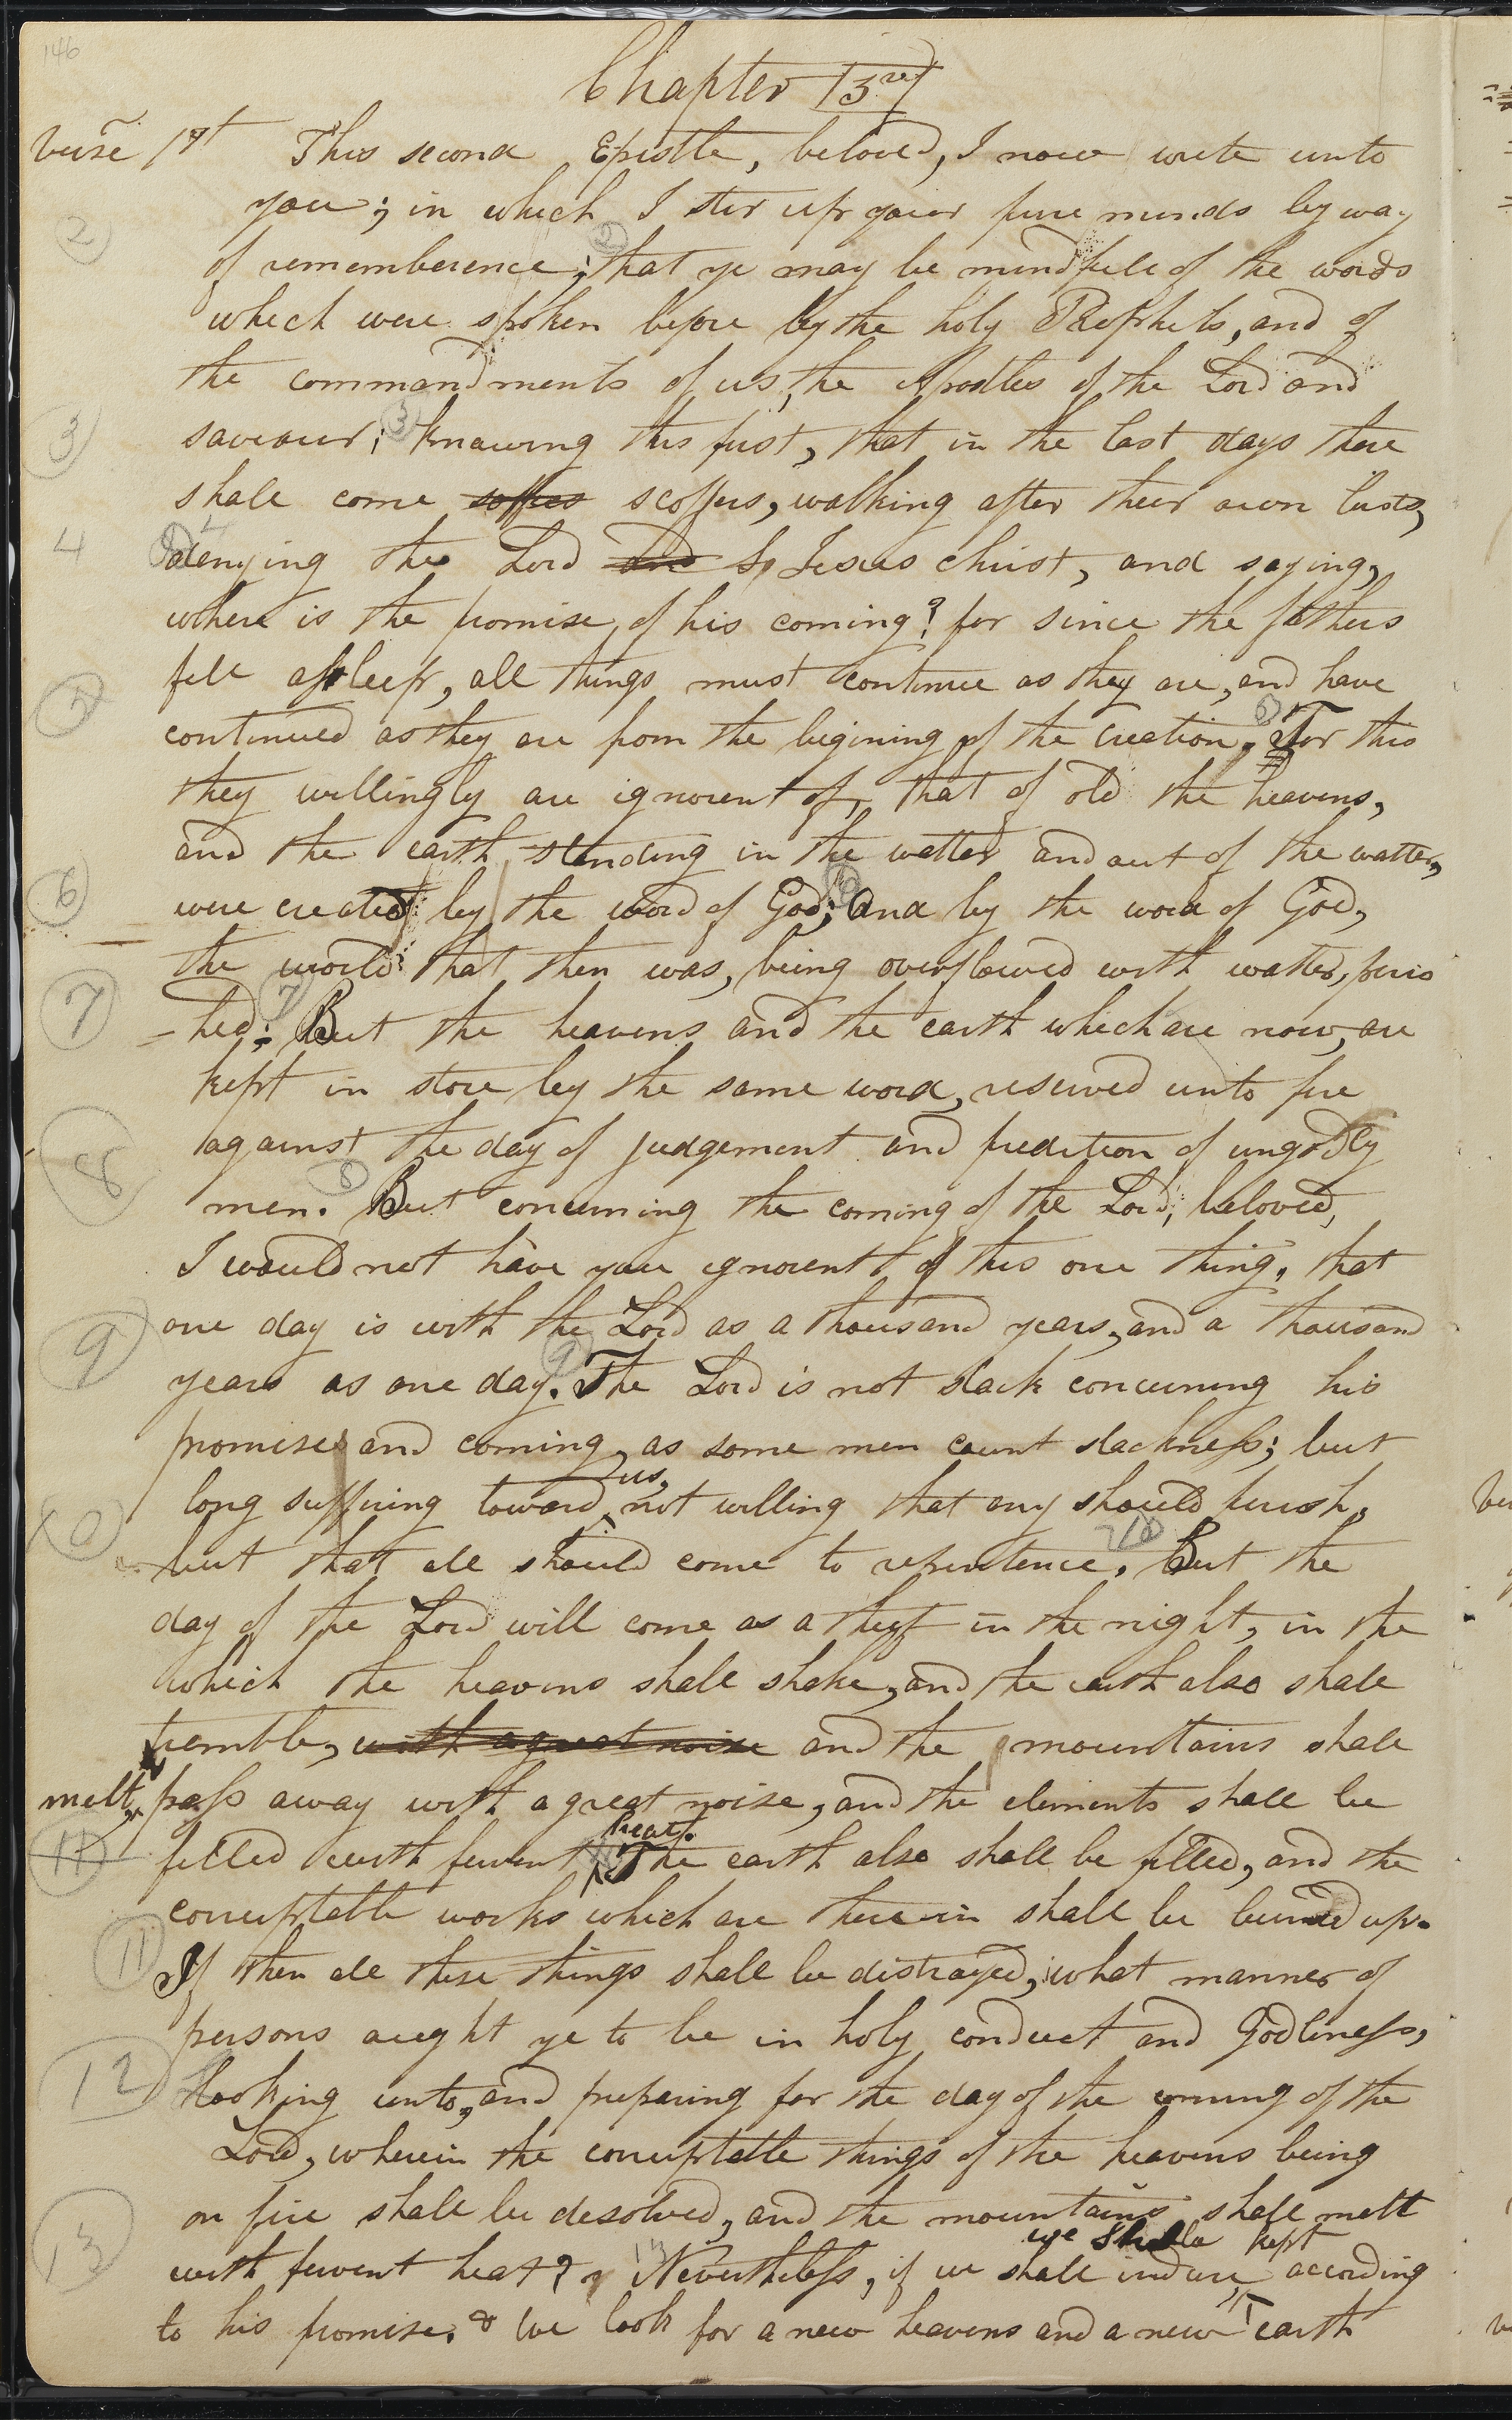 146
Chapter 3rd
verse 1st This second Epistle, beloved, I now write unto
2 you; in which I stir up your pure minds by way
of rememberence; 2 that ye may be mindfull of the words
which were spoken before by the holy Prophets, and of
the commandments of us, the Apostles of the Lord and
3 saviour; 3 knowing this first, that in the last days there
shall come soffres scoffers, walking after their own lusts,
4 denying the Lord Lord Jesus christ, and saying,
where is the promise of his coming? for since the fathers
fell asleep, all things must continue as they are, and have
5 continued as they are from the begining of the creation. 5 For this
they willingly are ignorent of, that of old the heavens,
and the earth standing in the watter and out of the watter,
6 were created by the word of God; 6 And by the word of God,
the world that then was, being overflowed with watter, peris
7 -hed; 7 But the heavens and the earth which are now, are
kept in store by the same word, reserved unto fire
8 against the day of judgement and predition of ungodly
men. 8 But concerning the coming of the Lord, beloved,
I would not have you ignorent of this one thing, that
9 one day is with the Lord as a thousand years, and a thousand
years as one day. 9 The Lord is not slack concerning his
promises and coming, as some men count slackness; but
long suffering toward us, not willing that any should perish,
10 but that all should come to repentence. 10 But the
day of the Lord will come as a theif in the night, in the
which the heavens shall shake, and the earth also shall
tremble, with a great noise and the mountains shall
melt, pass away with a great noise, and the elements shall be
11 filled with fervent heat. The earth also shall be filled, and the
corruptable works which are therein shall be burned up.
11 If then all these things shall be distroyed, what manner of
persons aught ye to be in holy conduct and Godliness,
12 looking unto, and preparing for the day of the coming of the
Lord, wherein the corruptable things of the heavens being
on fire shall be desolved, and the mountains shall melt
13 with fervent heat? 13 Nevertheless, if we shall indure, we shall be kept according
to his promise. & We look for a new heavens and a new earth